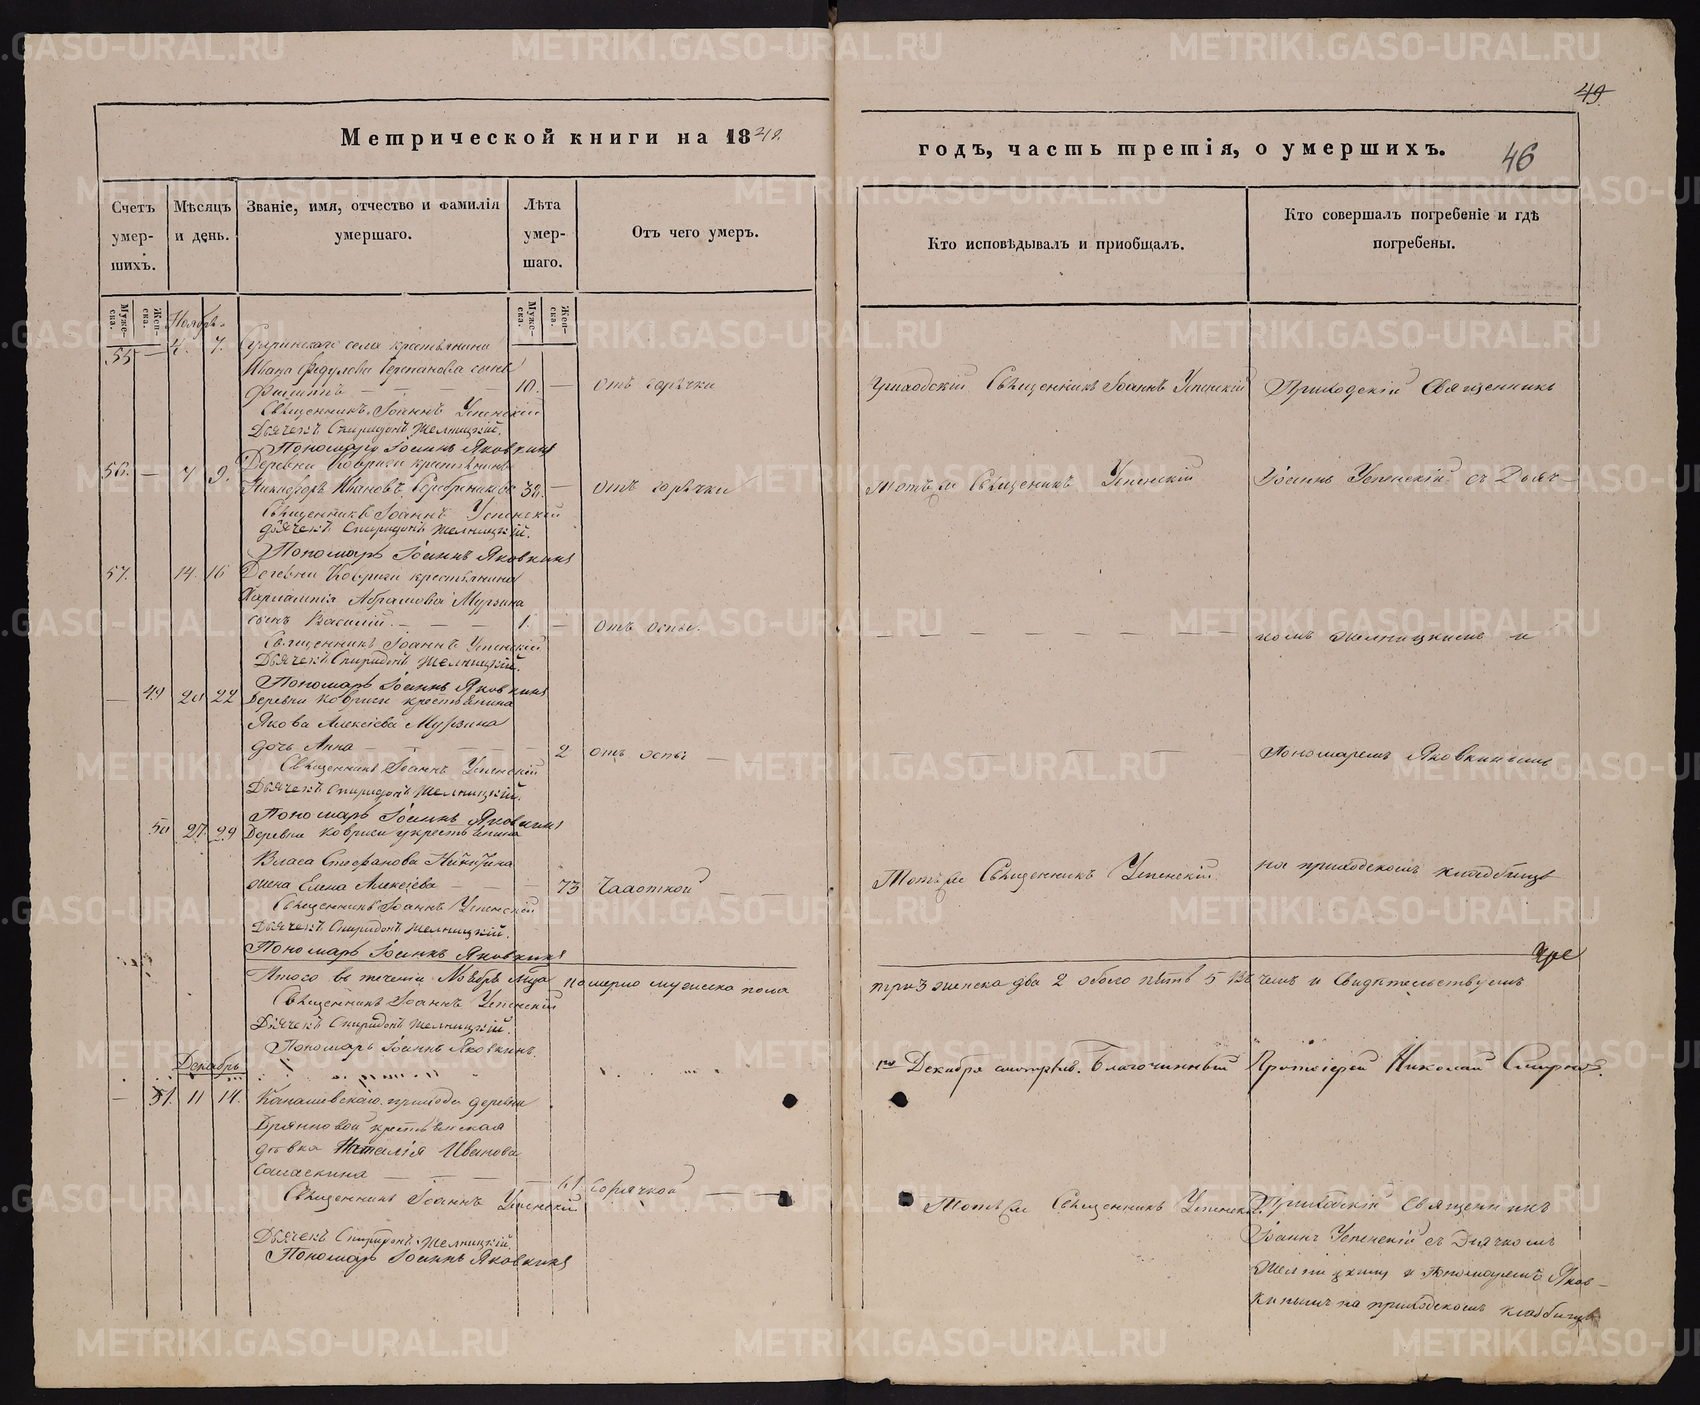 49
Метрической книги на 1842
годъ, часть третія, о умершихъ.
46
Счетъ умер-шихъ.
Мѣсяцъ и день.
Званіе, имя, отчество и фамилія умершаго.
Лѣта умер-шаго.
Отъ чего умеръ.
Кто исповѣдывалъ и пріобщалъ.
Кто совершалъ погребеніе и гдѣ погребены.
Муже-ска.
Жен-ска.
Муже-ска.
Жен-ска.
Ноябрь
55 — 4. 7. села крестьянина
Ивана Федулова Степанова сынъ
Филиппъ — — — 10. — отъ горячки
Приходскій Священникъ Іоаннъ Успенскій
Приходскій Священникъ
Священникъ Іоаннъ Успенскій
Дьячекъ Спиридонъ Желницкій.
Пономарь Іоаннъ Яковкинъ
56. — 7 9. Деревни Ковриги крестьянинъ
Никифоръ Ивановъ 32. — отъ горячки
Тотъ же Священникъ Успенскій
Іоаннъ Успенскій съ Дьяч-
Священникъ Іоаннъ Успенскій
Дьячекъ Спиридонъ Желницкій.
Пономарь Іоаннъ Яковкинъ
57. 14. 16 Деревни Ковриги крестьянина
Харлампія Абрамова Мурзина
сынъ Василій. — — — 1. — отъ оспы.
— — — — — — — —
комъ Желницкимъ и
Священникъ Іоаннъ Успенскій
Дьячекъ Спиридонъ Желницкій.
Пономарь Іоаннъ Яковкинъ
— 49 20 22 Деревни Ковриги крестьянина
Якова Алексѣева Мурзина
дочь Анна — — — — 2 отъ оспы —
— — — —
Пономаремъ Яковкинымъ
Священникъ Іоаннъ Успенскій
Дьячекъ Спиридонъ Желницкій.
Пономарь Іоаннъ Яковкинъ
50 27. 29 Деревни Ковриги крестьянина
Власа Стефанова Никитина
жена Елена Алексѣева — — — 73 Чахоткой — —
Тотъ же Священникъ Успенскій.
на приходскомъ кладбищѣ
Священникъ Іоаннъ Успенскій
Дьячекъ Спиридонъ Желницкій.
Пономарь Іоаннъ Яковкинъ
Итого въ теченіи Ноября м-ца померло мужеска пола
три 3 женска два 2 обоего пять 5 въ чемъ и свидѣтельствуемъ
Священникъ Іоаннъ Успенскій
Дьячекъ Спиридонъ Желницкій.
Пономарь Іоаннъ Яковкинъ.
Декабря смотрѣлъ. Благочинный Протоіерей Николай Смирновъ.
Декабрь
— 51. 11 14. Канашевскаго прихода деревни
крестьянская
дѣвка Наталія Иванова
— — — 61. горячкой — —
Тотъ же Священникъ Успенскій.
Приходскій Священникъ
Священникъ Іоаннъ Успенскій
Іоаннъ Успенскій съ Дьячкомъ
Дьячекъ Спиридонъ Желницкій.
Желницкимъ и Пономаремъ Яков-
Пономарь Іоаннъ Яковкинъ
кинымъ на приходскомъ кладбищѣ
METRIKI.GASO-URAL.RU